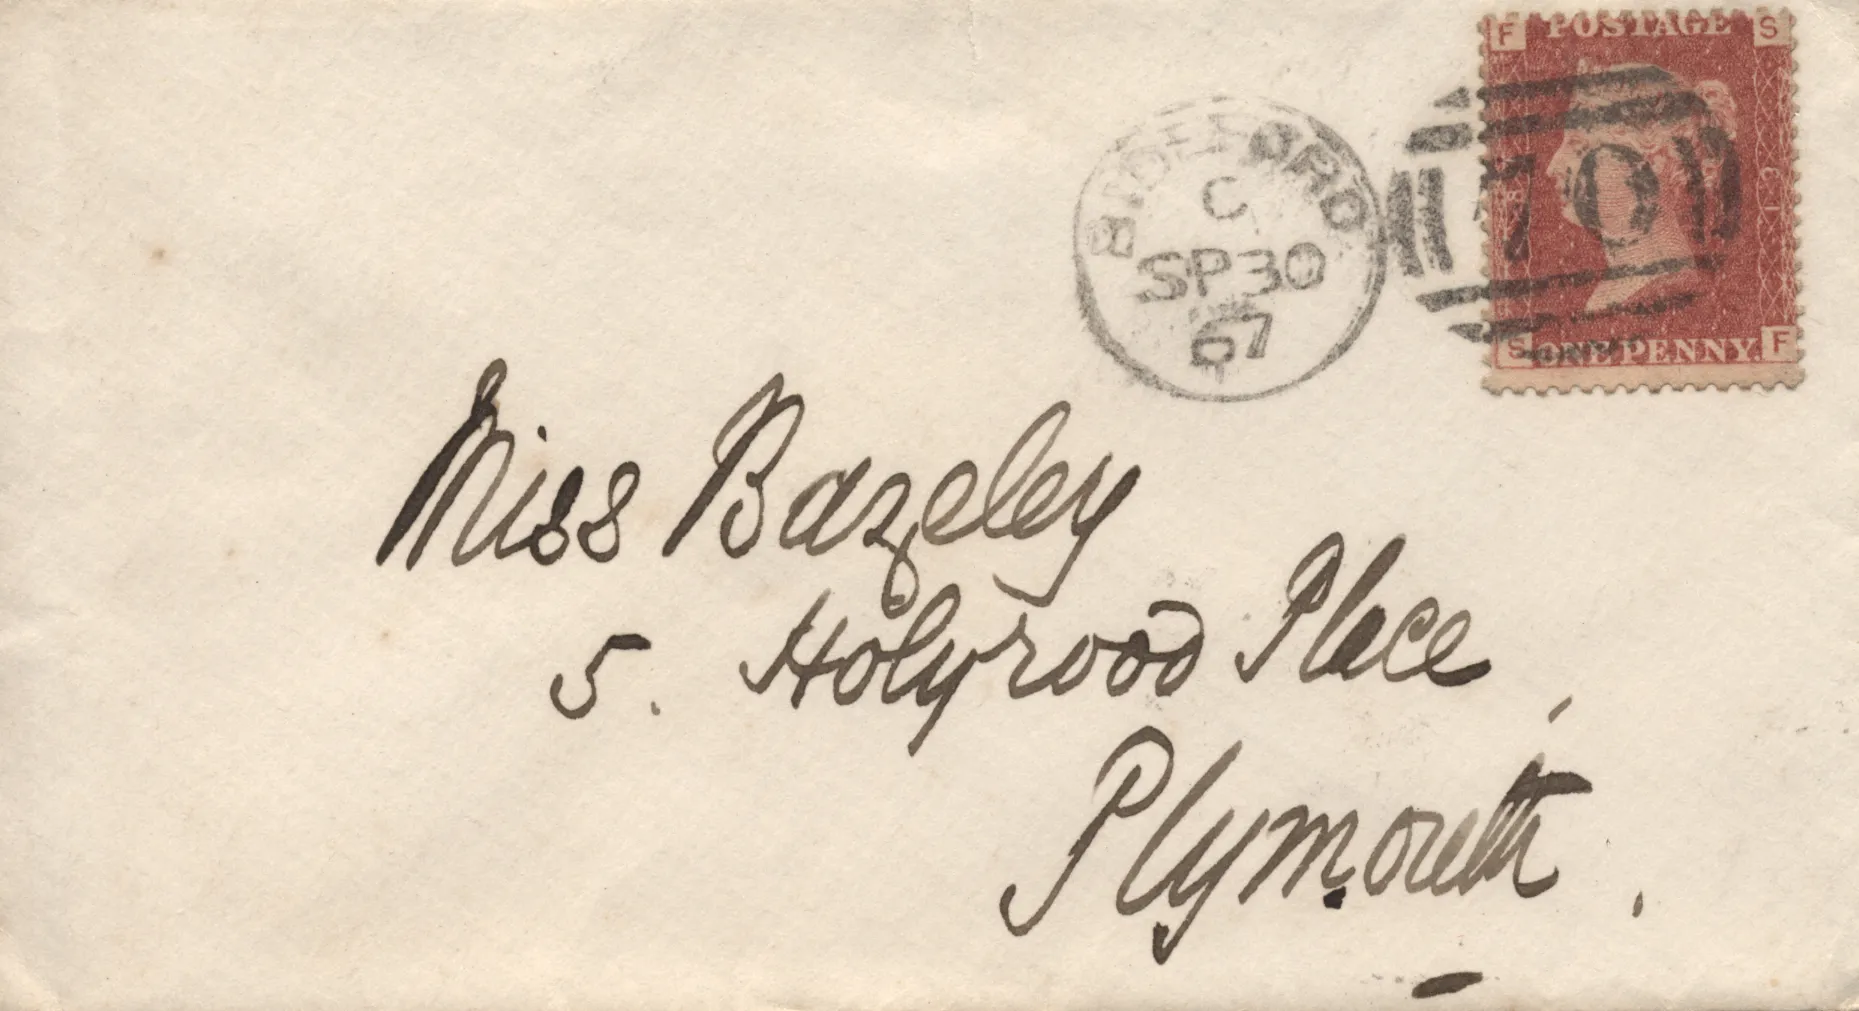 F POSTAGE S
BIDEFORD
C
SP 30
67
70
S ONE PENNY F
Miss Bazeley
5. Holyrood Place,
Plymouth.